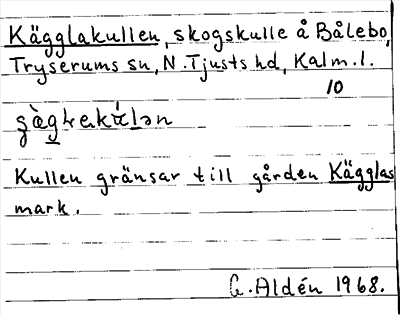 Kägglakullen, skogskulle å Bålebo,
Tryserums sn, N. Tjusts hd, Kalm. l.
10
Kullen gränsar till gården Kägglas
mark.
G. Aldén 1968.